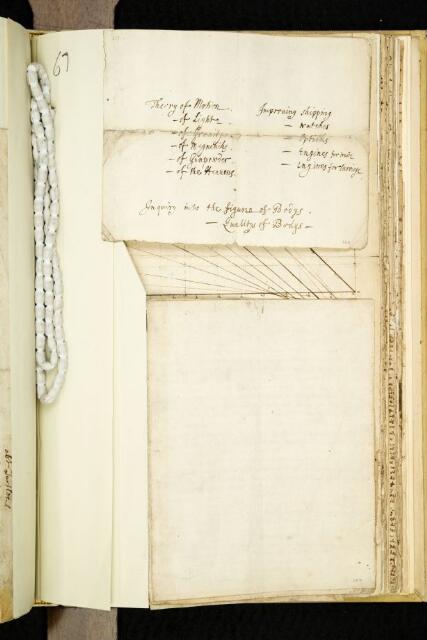 67
Theory of Motion
— of Light
— of Gravity
— of Magneticks
— of Gunpowder
— of the Heavens
Improving shipping
— watches
— Opticks
— Engines for trade
— Engines for
Inquiry into the figure of Bodys.
— Qualitys of Bodys —